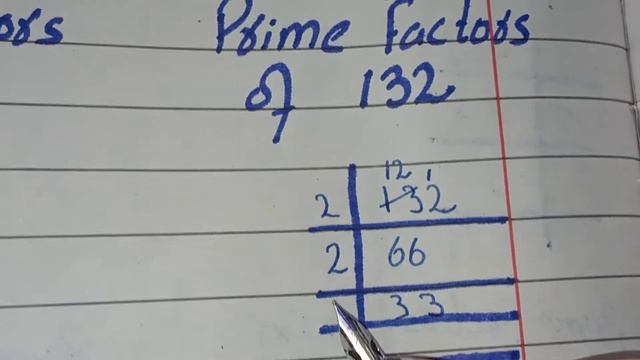 ors Prime Factors
of 132
12 1
2 132
2 66
33